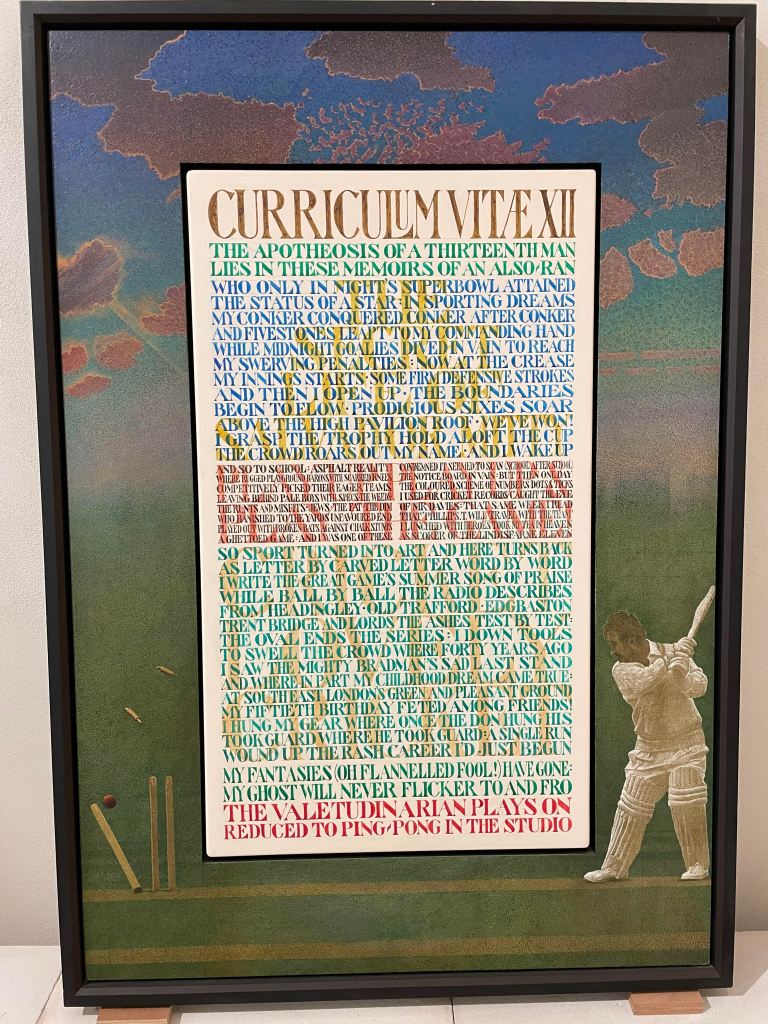 CURRICULUM VITÆ XII
THE APOTHEOSIS OF A THIRTEENTH MAN
LIES IN THESE MEMOIRS OF AN ALSO-RAN
WHO ONLY IN NIGHT'S SUPERBOWL ATTAINED
THE STATUS OF A STAR: IN SPORTING DREAMS
MY CONKER CONQUERED CONKER AFTER CONKER
AND FIVESTONES LEAPT TO MY COMMANDING HAND
WHILE MIDNIGHT GOALIES DIVED IN VAIN TO REACH
MY SWERVING PENALTIES: NOW AT THE CREASE
MY INNINGS STARTS: SOME FIRM DEFENSIVE STROKES
AND THEN I OPEN UP: THE BOUNDARIES
BEGIN TO FLOW: PRODIGIOUS SIXES SOAR
ABOVE THE HIGH PAVILION ROOF: WE'VE WON!
I GRASP THE TROPHY HOLD ALOFT THE CUP
THE CROWD ROARS OUT MY NAME: AND I WAKE UP
AND SO TO SCHOOL: ASPHALT REALITY
WHERE RUGGED PLAYGROUND BARONS WITH SCARRED KNEES
COMPETITIVELY PICKED THEIR EAGER TEAMS
LEAVING BEHIND PALE BOYS WITH SPECS: THE WEEDS
THE RUNTS AND MISFITS: THE FAT: THE DIM
WHO BANISHED TO THE YARD'S UNFAVOURED END
PLAYED OUT WITH BROKEN BATS AGAINST CHALK STUMPS
A GHETTOED GAME: AND I WAS ONE OF THESE
CONDEMNED IT SEEMED TO SCAN (SCHOOL AFTER SCHOOL
THE NOTICE BOARD IN VAIN: BUT THEN ONE DAY
THE COLOURED SCHEME OF NUMBERS DOTS & TICKS
USED FOR CRICKET RECORDS CAUGHT THE EYE
OF MR DAVIES: THAT SAME WEEK I READ
THAT 'PHILLIPS.T. WILL TRAVEL WITH THE TEAM'
I LUNCHED WITH HEROES: TOOK MY TEA IN HEAVEN
AS SCORER OF THE LINDISFARNE ELEVEN
SO SPORT TURNED INTO ART AND HERE TURNS BACK
AS LETTER BY CARVED LETTER WORD BY WORD
I WRITE THE GREAT GAME'S SUMMER SONG OF PRAISE
WHILE BALL BY BALL THE RADIO DESCRIBES
FROM HEADINGLEY: OLD TRAFFORD: EDGBASTON
TRENT BRIDGE AND LORDS THE ASHES TEST BY TEST:
THE OVAL ENDS THE SERIES: I DOWN TOOLS
TO SWELL THE CROWD WHERE FORTY YEARS AGO
I SAW THE MIGHTY BRADMAN'S SAD LAST STAND
AND WHERE IN PART MY CHILDHOOD DREAM CAME TRUE:
AT SOUTH EAST LONDON'S GREEN AND PLEASANT GROUND
MY FIFTIETH BIRTHDAY FETED AMONG FRIENDS!
I HUNG MY GEAR WHERE ONCE THE DON HUNG HIS
TOOK GUARD WHERE HE TOOK GUARD: A SINGLE RUN
WOUND UP THE RASH CAREER I'D JUST BEGUN
MY FANTASIES (OH FLANNELLED FOOL!) HAVE GONE:
MY GHOST WILL NEVER FLICKER TO AND FRO
THE VALETUDINARIAN PLAYS ON
REDUCED TO PING-PONG IN THE STUDIO